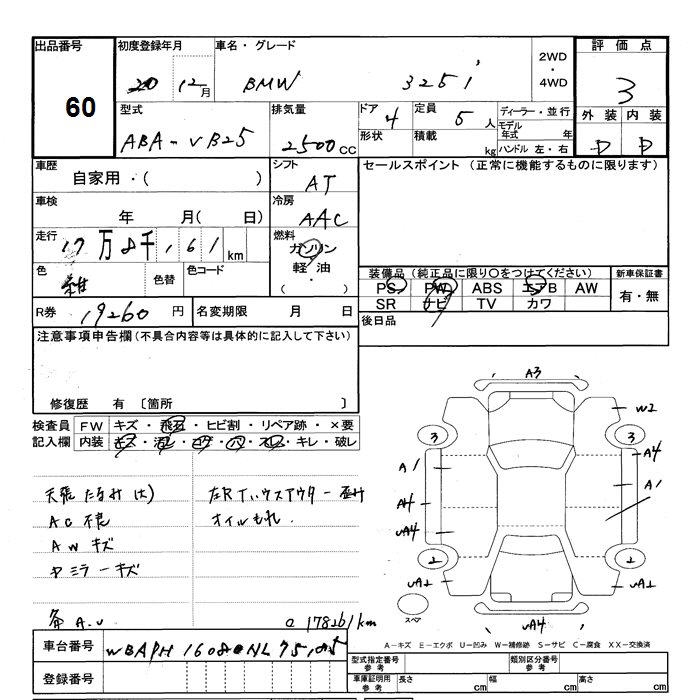 出品番号
60
初度登録年月
20 12月
車名・グレード
BMW 325i
2WD
・
4WD
評価点
3
外装 内装
D D
型式
ABA-VB25
排気量
2500cc
ドア
4
形状
定員
5人
積載
kg
ディーラー・並行
モデル年式 年
ハンドル 左・右
車歴
自家用・( )
シフト
AT
セールスポイント (正常に機能するものに限ります)
車検
年 月( 日)
冷房
AAC
走行
17万8千,161km
燃料
ガソリン
軽油
( ・ )
色
色替
色コード
装備品(純正品に限り○をつけてください)
PS PW ABS エアB AW
SR ナビ TV カワ
新車保証書
有・無
R券
19260円
名変期限 月 日
後日品
注意事項申告欄(不具合内容等は具体的に記入して下さい)
修復歴 有〔箇所 〕
検査員記入欄
FW キズ・飛石・ヒビ割・リペア跡・×要
内装 キズ・ ・ ・ ・スレ・キレ・破レ
天張たるみ(大)
AC不良
AWキズ
ヤミラーキズ
左RTハウスアウター
オイルもれ.
178261km
A3
W2
3
3
A1
A4
A4
A1
2
2
スペア
A-キズ E-エクボ U-凹み W-補修跡 S-サビ C-腐食 XX-交換済
車台番号
登録番号
型式指定番号
参考
類別区分番号
参考
車庫証明用
参考
長さ cm
幅 cm
高さ cm